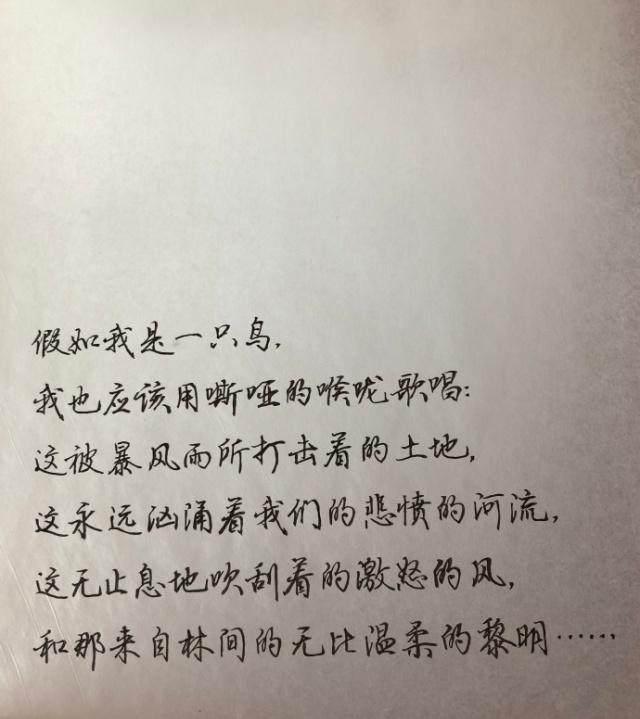 假如我是一只鸟,
我也应该用嘶哑的喉咙歌唱:
这被暴风雨所打击着的土地,
这永远汹涌着我们的悲愤的河流,
这无止息地吹刮着的激怒的风,
和那来自林间的无比温柔的黎明……